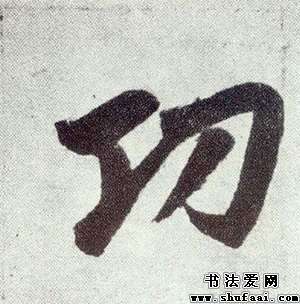 功
书法爱网
www.shufaai.com